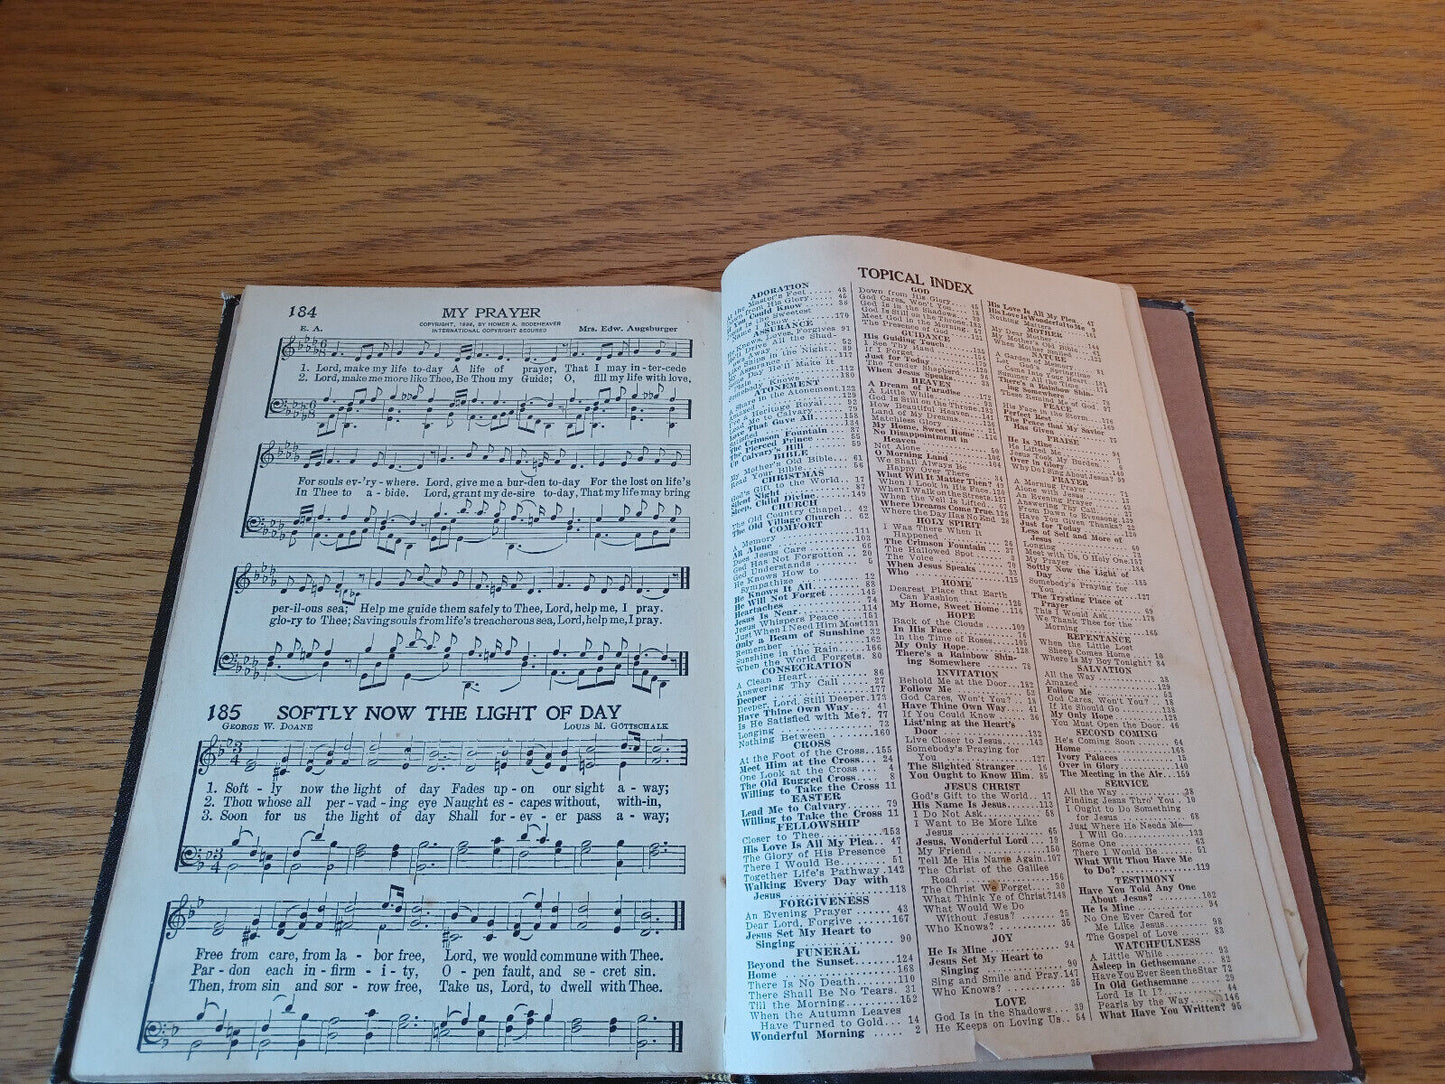 184
MY PRAYER
COPYRIGHT, 1936, BY HOMER A. RODEHEAVER
INTERNATIONAL COPYRIGHT SECURED
E. A.
Mrs. Edw. Augsburger
1. Lord, make my life to-day A life of prayer, That I may in-ter-cede
2. Lord, make me more like Thee, Be Thou my Guide; O, fill my life with love,
For souls ev-'ry-where. Lord, give me a bur-den to-day For the lost on life's
In Thee to a-bide. Lord, grant my de-sire to-day, That my life may bring
per-il-ous sea; Help me guide them safely to Thee, Lord, help me, I pray.
glo-ry to Thee; Saving souls from life's treacherous sea, Lord, help me, I pray.
185
SOFTLY NOW THE LIGHT OF DAY
GEORGE W. DOANE
LOUIS M. GOTTSCHALK
1. Soft - ly now the light of day Fades up - on our sight a - way;
2. Thou whose all per - vad - ing eye Naught es - capes without, with-in,
3. Soon for us the light of day Shall for - ev - er pass a - way;
Free from care, from la - bor free, Lord, we would commune with Thee.
Par - don each in - firm - i - ty, O - pen fault, and se - cret sin.
Then, from sin and sor - row free, Take us, Lord, to dwell with Thee.
TOPICAL INDEX
ADORATION
At the Master's Feet
If You Could Know
ASSURANCE
ATONEMENT
Satisfied
The Crimson Fountain
The Pierced Prince
Up Calvary's Hill
BIBLE
My Mother's Old Bible 61
Read Your Bible 56
CHRISTMAS
God's Gift to the World 17
Silent Night 87
Sleep, Child Divine 149
CHURCH
The Old Country Chapel 42
The Old Village Church 62
COMFORT
A Memory 111
All Alone 103
Does Jesus Care 65
God Has Not Forgotten 20
God Understands 5
He Knows How to
Sympathize 12
He Knows It All 88
He Will Not Forget 145
Heartaches 74
Jesus Is Near 114
Jesus Whispers Peace 134
Just When I Need Him Most 131
Only a Beam of Sunshine 32
Remember 162
Sunshine in the Rain 166
When the World Forgets 80
CONSECRATION
A Clean Heart 86
Answering Thy Call 27
Deeper 177
Deeper, Lord, Still Deeper 173
Have Thine Own Way 41
Is He Satisfied with Me? 77
Longing 72
Nothing Between 160
CROSS
At the Foot of the Cross 155
Meet Him at the Cross 24
One Look at the Cross 4
The Old Rugged Cross 8
Willing to Take the Cross 11
EASTER
Lead Me to Calvary 79
Willing to Take the Cross 11
FELLOWSHIP
Closer to Thee 153
His Love Is All My Plea 47
The Glory of His Presence 1
There I Would Be 51
Together Life's Pathway 142
Walking Every Day with
Jesus 118
FORGIVENESS
An Evening Prayer 43
Dear Lord, Forgive 167
Jesus Set My Heart to
Singing 90
FUNERAL
Beyond the Sunset 124
Home 168
There Is No Death 110
There Shall Be No Tears 31
Till the Morning 152
When the Autumn Leaves
Have Turned to Gold 14
Wonderful Morning 2
GOD
Down from His Glory 45
God Cares, Won't You
God Is in the Shadows
God Is Still on the Throne
Meet God in the Morning
The Presence of God
GUIDANCE
His Guiding Touch
I See Thy Hand
If I Forget
Just for Today
The Tender Shepherd
When Jesus Speaks
HEAVEN
A Dream of Paradise
A Little While
God Is Still on the Throne
How Beautiful Heaven
Land of My Dreams
Matchless Glory
My Home, Sweet Home 116
No Disappointment in
Heaven
Not Alone
O Morning Land
We Shall Always Be
Happy Over There
What Will It Matter Then?
When I Look in His Face
When I Walk on the Streets
When the Veil Is Lifted
Where Dreams Come True 126
Where the Day Has No End
HOLY SPIRIT
I Was There When It
Happened
The Crimson Fountain
The Hallowed Spot
The Voice
When Jesus Speaks
Who 115
HOME
Dearest Place that Earth
Can Fashion 128
My Home, Sweet Home 116
HOPE
Back of the Clouds 109
In His Face 16
In the Time of Roses 105
My Only Hope 128
There's a Rainbow Shin-
ing Somewhere 78
INVITATION
Behold Me at the Door 182
Follow Me 53
God Cares, Won't You? 18
Have Thine Own Way 41
If You Could Know 36
List'ning at the Heart's
Door 132
Live Closer to Jesus 143
Somebody's Praying for
You 127
The Slighted Stranger 16
You Ought to Know Him 85
JESUS CHRIST
God's Gift to the World 17
His Name Is Jesus 113
I Do Not Ask 58
I Want to Be More Like
Jesus 65
Jesus, Wonderful Lord 19
My Friend 150
Tell Me His Name Again 107
The Christ of the Galilee
Road 156
The Christ We Forget 39
What Think Ye of Christ? 148
What Would We Do
Without Jesus? 25
Who Knows? 35
JOY
He Is Mine 94
Jesus Set My Heart to
Singing 90
Sing and Smile and Pray 147
Who Knows? 35
LOVE
God Is in the Shadows 39
He Keeps on Loving Us 54
His Love Is All My Plea 47
His Love Is Wonderful to Me
Nothing Matters
MOTHER
My Dear Old Mother
When Mother Smiled
NATURE
A Garden of Memory
Let God's Springtime
Come Into Your Heart
There's a Rainbow Shin-
PEACE
His Face in the Storm
Perfect Rest
The Peace that My Savior
Has Given
PRAISE
He Is Mine
He Lifted Me
Jesus Took My Burden
Over in Glory
Why Do I Sing About Jesus?
PRAYER
A Morning Prayer
Alone with Jesus
An Evening Prayer
Answering Thy Call
From Dawn to Evensong
Have You Given Thanks?
Just for Today
Less of Self and More of
Jesus
Longing
Meet with Us, O Holy One 157
My Prayer 184
Softly Now the Light of
Day 185
Somebody's Praying for
You 127
The Trysting Place of
Prayer
This I Would Ask
We Thank Thee for the
Morning 165
REPENTANCE
When the Little Lost
Sheep Comes Home 10
Where Is My Boy Tonight? 84
SALVATION
All the Way
Amazed 129
Follow Me 53
God Cares, Won't You? 18
If He Should Go
My Only Hope 128
You Must Open the Door 46
SECOND COMING
He's Coming Soon 64
Home 168
Ivory Palaces 15
Over in Glory 140
The Meeting in the Air 159
SERVICE
All the Way 28
Finding Jesus Thro' You 19
I Ought to Do Something
for Jesus 68
Just Where He Needs Me
I Will Go 133
Some One 63
There I Would Be 51
What Wilt Thou Have Me
to Do? 119
TESTIMONY
Have You Told Any One
About Jesus? 162
He Is Mine 94
No One Ever Cared for
Me Like Jesus 98
The Gospel of Love 83
WATCHFULNESS
A Little While 93
Asleep in Gethsemane 82
Have You Ever Seen the Star 72
In Old Gethsemane 29
Lord Is It I? 44
Pearls by the Way 146
What Have You Written? 95